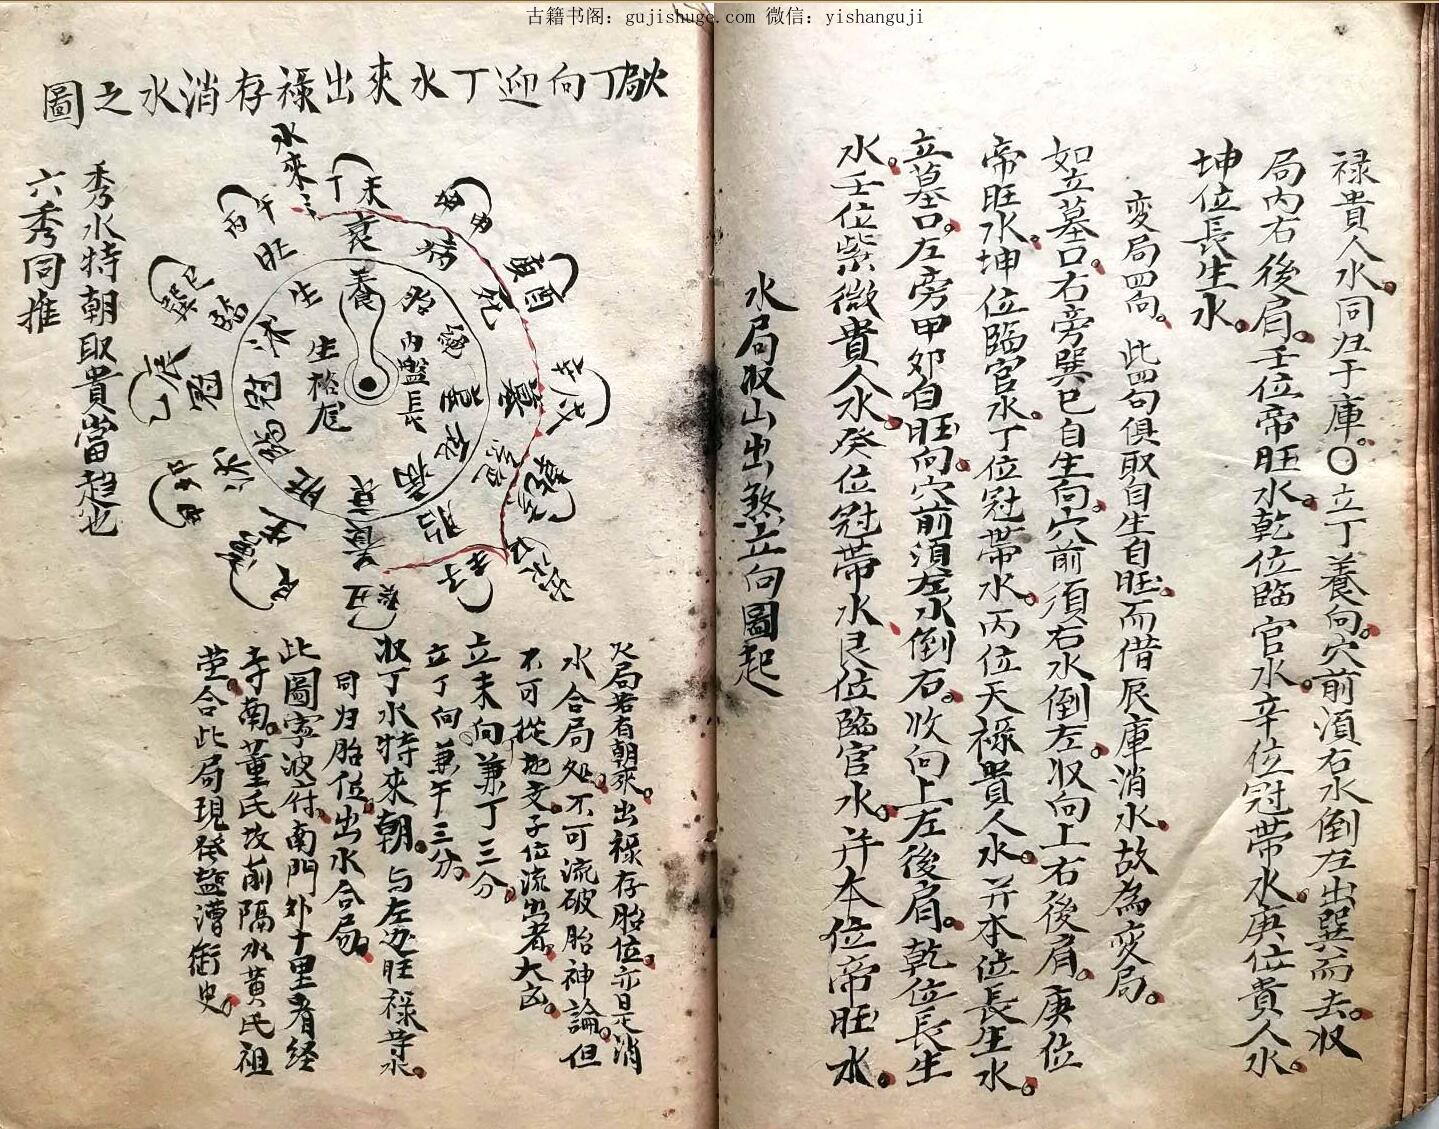 古籍书阁：gujishuge.com 微信：yishanguji
禄貴人水同归于庫。○立丁養向。穴前湏右水倒左出巽而去。収
局内右後肩。壬位帝旺水。乾位臨官水。辛位冠帶水。庚位貴人水。
坤位長生水。
変局四向。此四句俱取自生自旺。而借辰庫消水。故為变局。
如立墓口。右旁巽巳自生向。穴前須右水倒左。収向上右後肩。庚位
帝旺水。坤位臨官水。丁位冠帶水。丙位天禄貴人水。并本位長生水。
立墓口。左旁甲夘自旺向。穴前湏左水倒右。收向上左後肩。乾位長生
水。壬位紫微貴人水。癸位冠帶水。艮位臨官水。并本位帝旺水。
水局収山出煞立向圖起
火局丁向迎丁水來出禄存消水之圖
水來
丁未
坤申
庚酉
辛戌
壬子
癸丑
乙辰
巽巳
丙午
衰
病
死
墓
絶
胎
養
生
冠
臨
旺
内盤長
生格龍
秀水特朝取貴當趋也
六秀同推
火局若有朝來。出禄存胎位。亦是消
水合局処。不可流破胎神論。但
不可從地支。子位流出者。大凶。
立未向兼丁三分。
立丁向兼午三分。
収丁水特來朝。与左边旺禄等水。
同归胎位。出水合局。
此圖寧波府。南門外十里者経
寺南。董氏坟前隔水黄氏祖
茔。合此局。現發盐漕衙史。